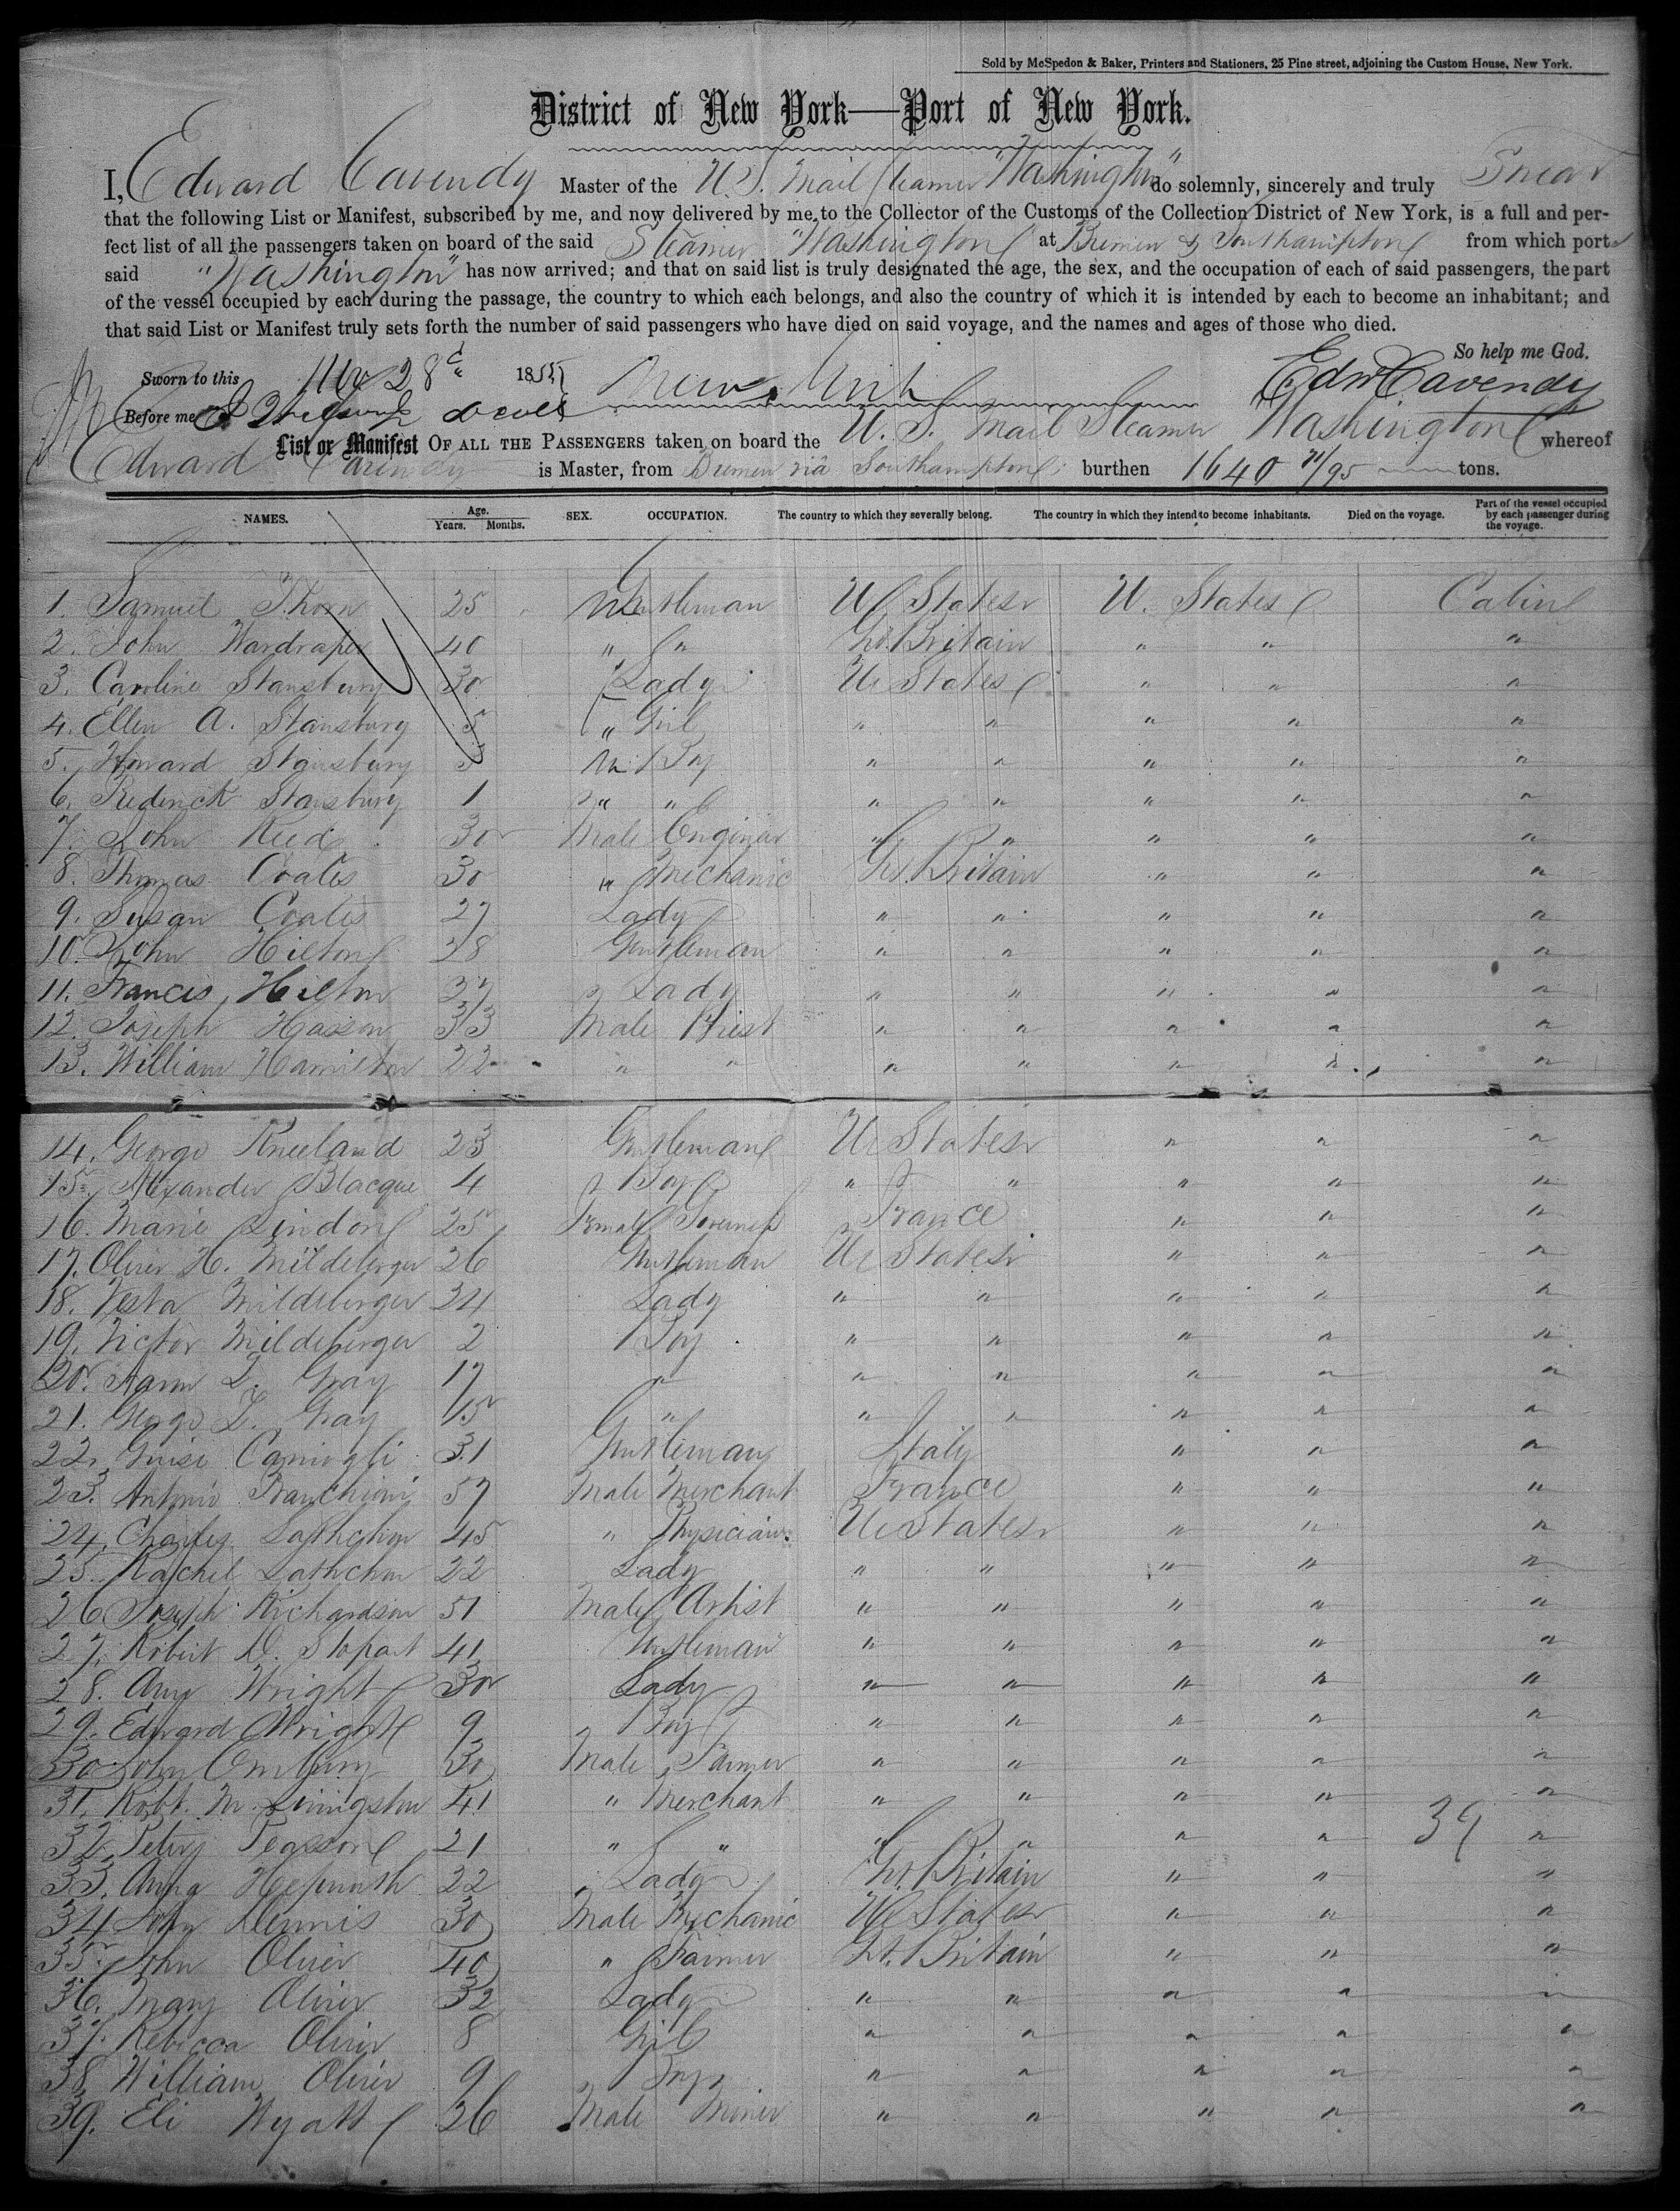 Sold by McSpedon & Baker, Printers and Stationers, 25 Pine street, adjoining the Custom House, New York.
District of New York—Port of New York.
I, Edward Cavendy Master of the U.S. Mail Steamer "Washington" do solemnly, sincerely and truly Swear
that the following List or Manifest, subscribed by me, and now delivered by me to the Collector of the Customs of the Collection District of New York, is a full and per-
fect list of all the passengers taken on board of the said Steamer "Washington" at Bremen & Southampton from which ports
said "Washington" has now arrived; and that on said list is truly designated the age, the sex, and the occupation of each of said passengers, the part
of the vessel occupied by each during the passage, the country to which each belongs, and also the country of which it is intended by each to become an inhabitant; and
that said List or Manifest truly sets forth the number of said passengers who have died on said voyage, and the names and ages of those who died.
So help me God.
Sworn to this Nov 28 1855 New York Edw Cavendy
Before me
List or Manifest OF ALL THE PASSENGERS taken on board the U. S. Mail Steamer Washington whereof
Edward Cavendy is Master, from Bremen via Southampton burthen 1640 71/95 tons.
NAMES. Age. Years. Months. SEX. OCCUPATION. The country to which they severally belong. The country in which they intend to become inhabitants. Died on the voyage. Part of the vessel occupied by each passenger during the voyage.
1. Samuel Thorn 25 Gentleman U States U. States Cabin
2. John Wardraper 40 " " Gt. Britain " " "
3. Caroline Stansbury 30 Lady U States " " "
4. Ellen A. Stansbury 5 " Girl " " " " "
5. Howard Stansbury 3 M Boy " " " " "
6. Frederick Stansbury 1 " " " " " " "
7. John Reed 30 Male Enginear " " " " "
8. Thomas Coates 30 " Mechanic Gt. Britain " " "
9. Susan Coates 27 Lady " " " " "
10. John Hilton 28 Gentleman " " " " "
11. Francis Hilton 37 Lady " " " " "
12. Joseph Hasson 33 Male Priest " " " " "
13. William Hamilton 22 " " " " " " "
14. George Kneeland 23 Gentleman U States " " "
15. Alexander Blacque 4 Boy " " " " "
16. Marie Lindon 25 Female Governess France " " "
17. Oliver H. Mildeberger 26 Gentleman U States " " "
18. Vesta Mildeberger 24 Lady " " " " "
19. Victor Mildeberger 2 Boy " " " " "
20. Z. Gray 17 " " " " " "
21. George Z. Gray 15 " " " " " "
22. Camogli 31 Gentleman Italy " " "
23. Antonio Franchioni 57 Male Merchant France " " "
24. Charles 45 " Physician U States " " "
25. Rachel 22 Lady " " " " "
26 Joseph Richardson 51 Male Artist " " " " "
27. Robert D. Stopart 41 Gentleman " " " " "
28. Amy Wright 30 Lady " " " " "
29. Edward Wright 9 Boy " " " " "
30 John Embury 30 Male Farmer " " " " "
31. Robt. M. Livingston 41 " Merchant " " " " "
32. Pearson 21 " " " " " " 39 "
33. Anna Hepworth 22 Lady Gt. Britain " " "
34 John Dennis 30 Male Mechanic U States " " "
35. John Oliver 40 " Farmer Gt. Britain " " "
36. Mary Oliver 32 Lady " " " " "
37. Rebecca Oliver 8 Girl " " " " "
38 William Oliver 9 Boy " " " " "
39. Eli Wyatt 26 Male Miner " " " " "